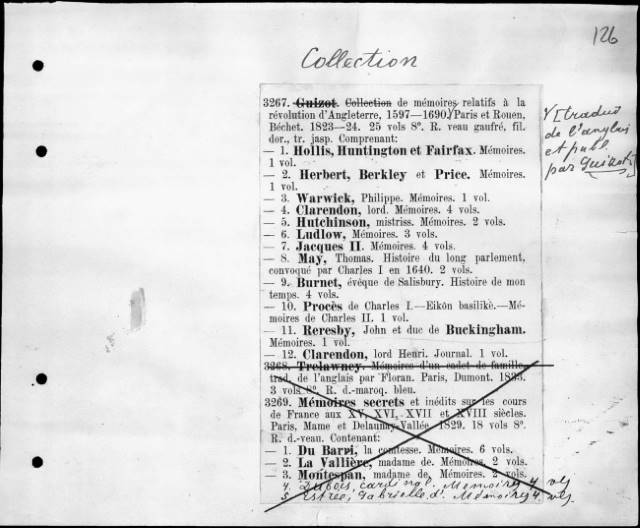 126
Collection
3267. Guizot. Collection de mémoires relatifs à la
révolution d'Angleterre, 1597—1690. Paris et Rouen,
Béchet. 1823—24. 25 vols 8°. R. veau gaufré, fil.
dor., tr. jasp. Comprenant:
γ [traduit
de l'anglais
et publ.
par Guizot]
— 1. Hollis, Huntington et Fairfax. Mémoires.
1 vol.
— 2. Herbert, Berkley et Price. Mémoires.
1 vol.
— 3. Warwick, Philippe. Mémoires. 1 vol.
— 4. Clarendon, lord. Mémoires. 4 vols.
— 5. Hutchinson, mistriss. Mémoires. 2 vols.
— 6. Ludlow, Mémoires. 3 vols.
— 7. Jacques II. Mémoires. 4 vols.
— 8. May, Thomas. Histoire du long parlement,
convoqué par Charles I en 1640. 2 vols.
— 9. Burnet, évêque de Salisbury. Histoire de mon
temps. 4 vols.
— 10. Procès de Charles I.—Eikōn basilikè.—Mé-
moires de Charles II. 1 vol.
— 11. Reresby, John et duc de Buckingham.
Mémoires. 1 vol.
— 12. Clarendon, lord Henri. Journal. 1 vol.
3268. Trelawney. Mémoires d'un cadet de famille,
trad. de l'anglais par Floran. Paris, Dumont. 1833.
3 vols 8°. R. d.-maroq. bleu.
3269. Mémoires secrets et inédits sur les cours
de France aux XV, XVI, XVII et XVIII siècles.
Paris, Mame et Delaunay-Vallée. 1829. 18 vols 8°.
R. d.-veau. Contenant:
— 1. Du Barri, la comtesse. Memoires. 6 vols.
— 2. La Vallière, madame de. Mémoires. 2 vols.
— 3. Montespan, madame de, Mémoires. 2 vols.
4. Dubois, cardinal. Memoires 4 vls
5. Estrée, Gabrielle d'. Mémoires 4 vls.